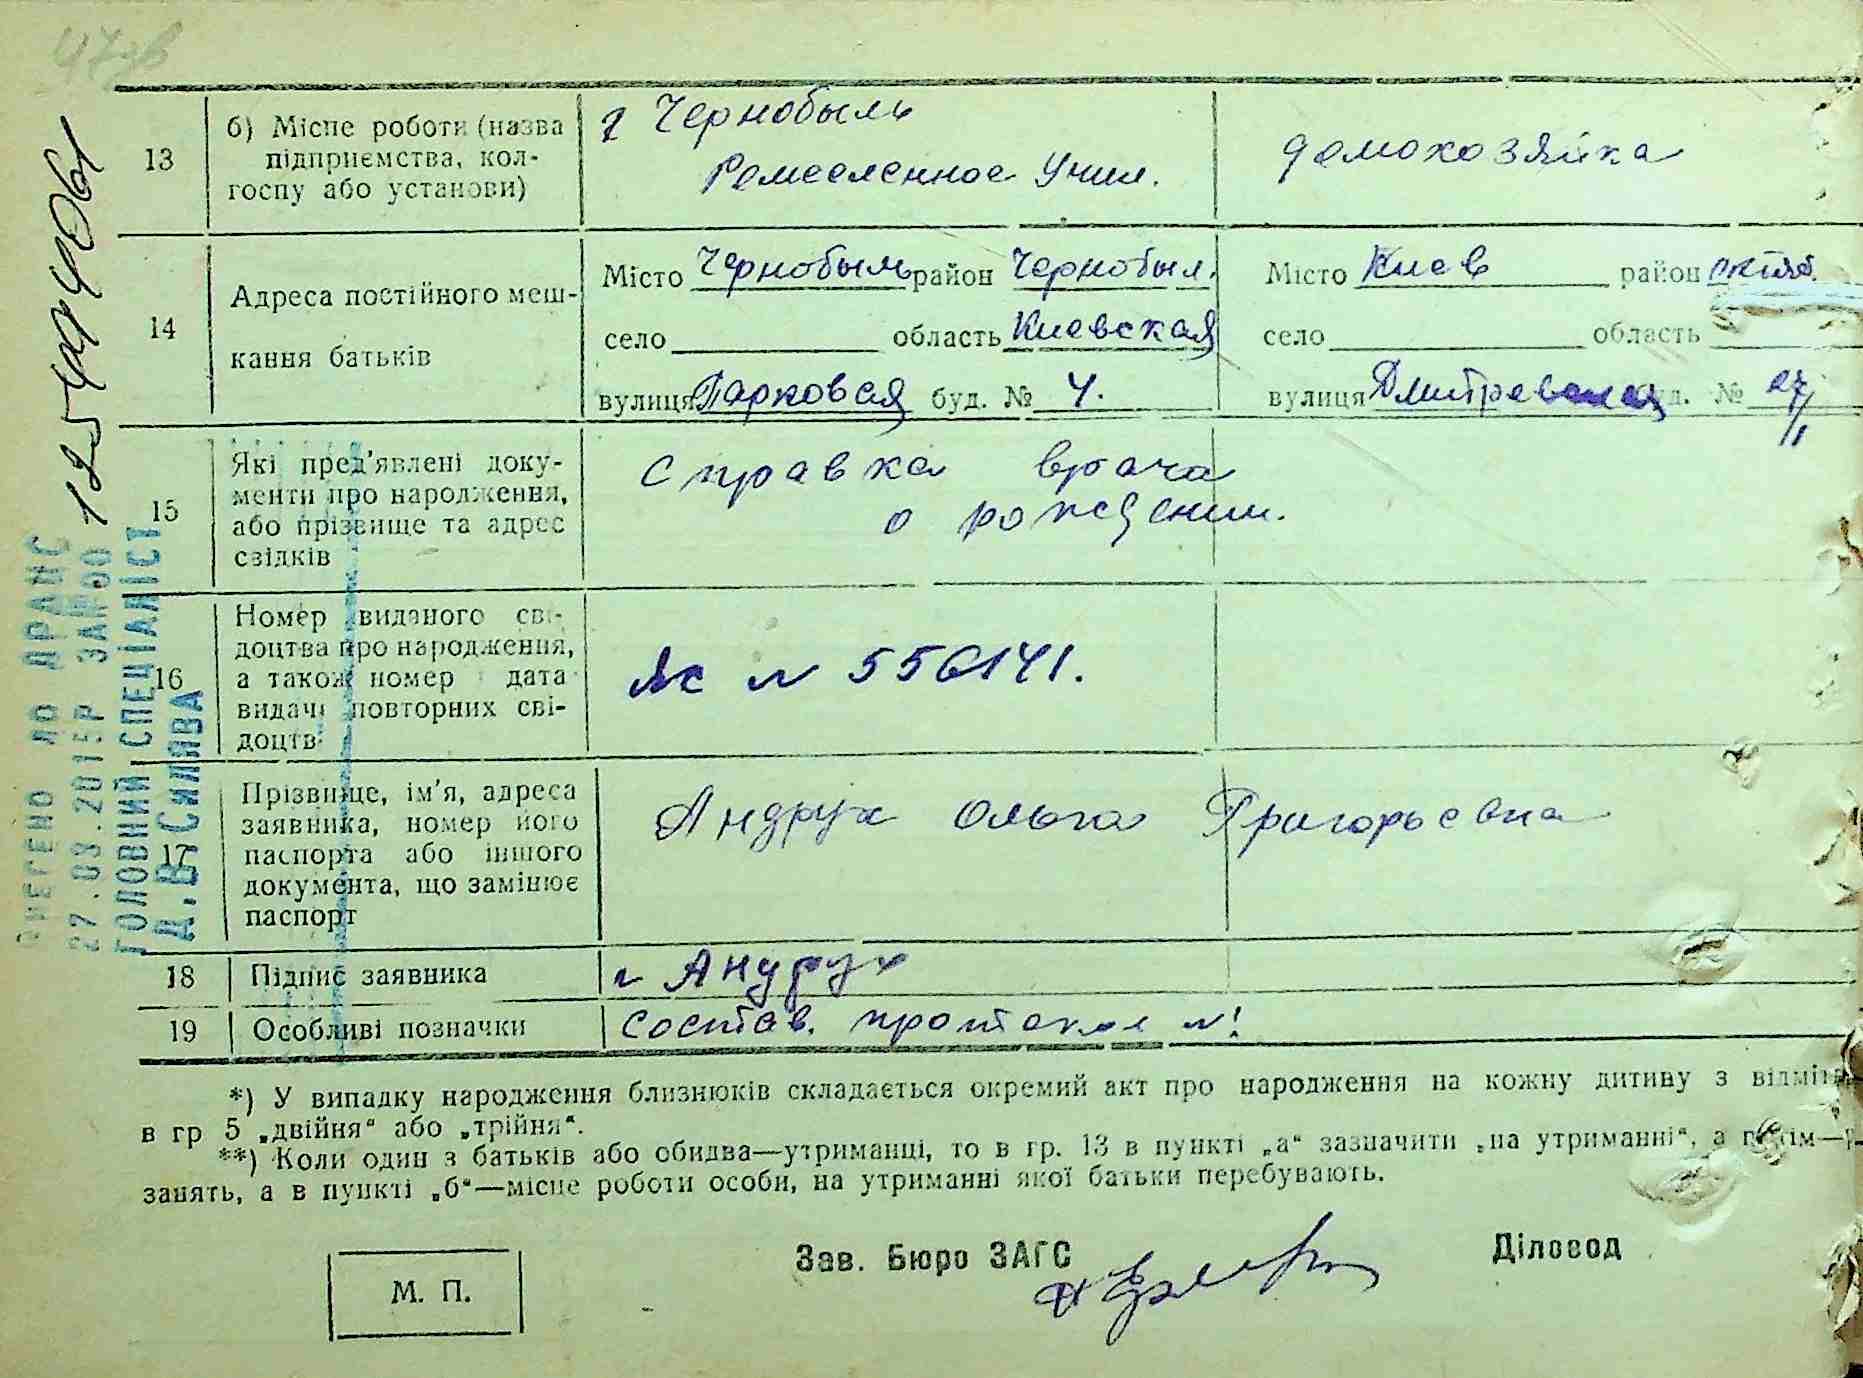 13
б) Місце роботи (назва
підприємства, кол-
госпу або установи)
г Чернобыль
Ремесленное Учил.
домохозяйка
14
Адреса постійного меш-
кання батьків
Місто Чернобыль район Чернобыл.
село область Киевская
вулиця Парковая буд. № 4.
Місто Киев район октяб.
село область
вулиця Дмитревская буд. №
15
Які пред'явлені доку-
менти про народження,
або прізвище та адрес
свідків
Справка врача
о рождении.
16
Номер виданого сві-
доцтва про народження,
а також номер дата
видачі повторних сві-
доцтв
ЯС № 556141.
17
Прізвище, ім'я, адреса
заявника, номер його
паспорта або іншого
документа, що замінює
паспорт
Андрух Ольга Григорьевна
18
Підпис заявника
Андрух
19
Особливі позначки
состав. протокол №!
*) У випадку народження близнюків складається окремий акт про народження на кожну дитину з відміт
в гр 5 „двійня“ або „трійня“.
**) Коли один з батьків або обидва—утриманці, то в гр. 13 в пункті „а“ зазначити „на утриманні“, а потім—р
занять, а в пункті „б“—місце роботи особи, на утриманні якої батьки перебувають.
М. П.
Зав. Бюро ЗАГС
Діловод
ВНЕСЕНО ДО ДРАЦС
27.03.2015Р ЗА №00
ГОЛОВНИЙ СПЕЦІАЛІСТ
Д.В.СИЛЯВА